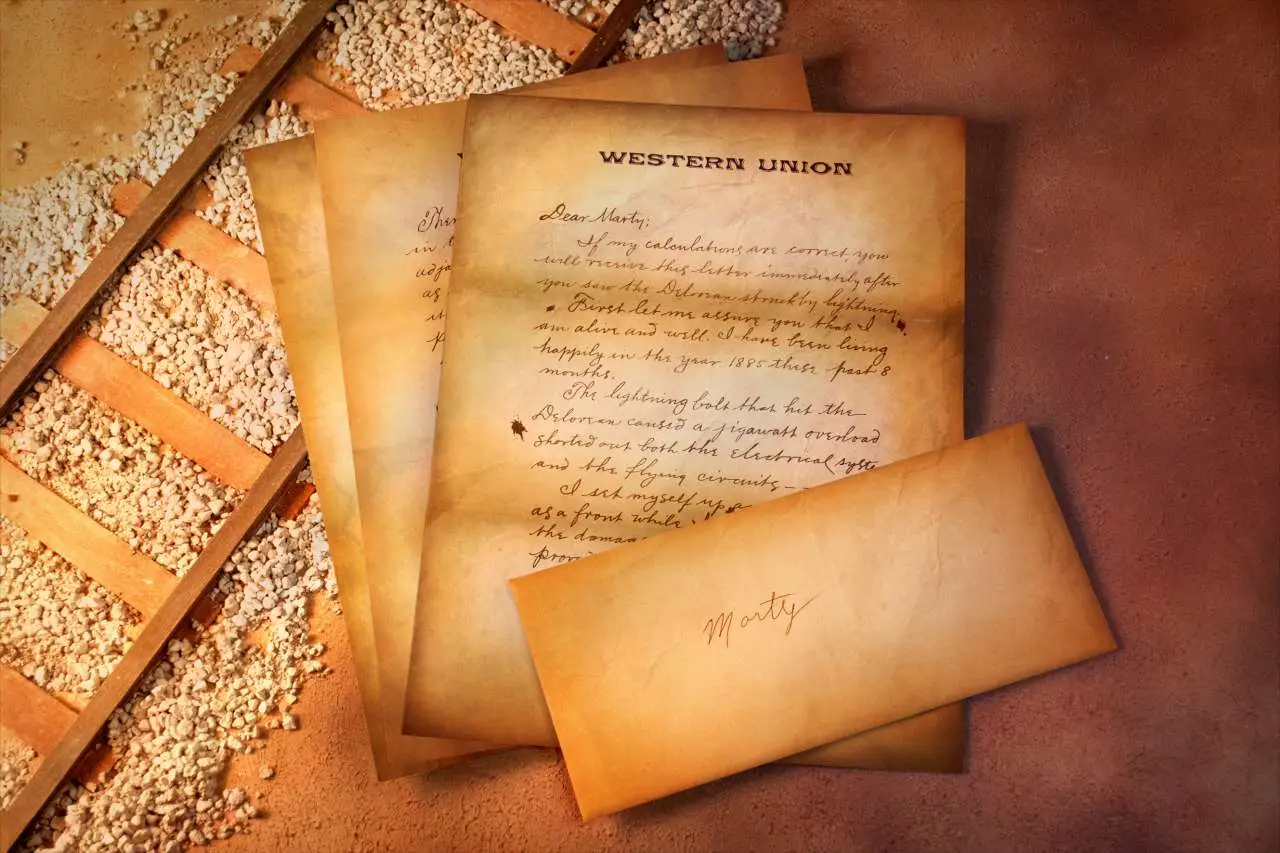 WESTERN UNION
Dear Marty;
If my calculations are correct, you
will receive this letter immediately after
you saw the Delorean struck by lightning.
First let me assure you that I
am alive and well. I have been living
happily in the year 1885 these past 8
months.
The lightning bolt that hit the
Delorean caused a jigawatt overload
shorted out both the electrical syste
and the flying circuits—
I set myself up a
as a front while
the damag
provi
Ther
in
adja
as
Marty